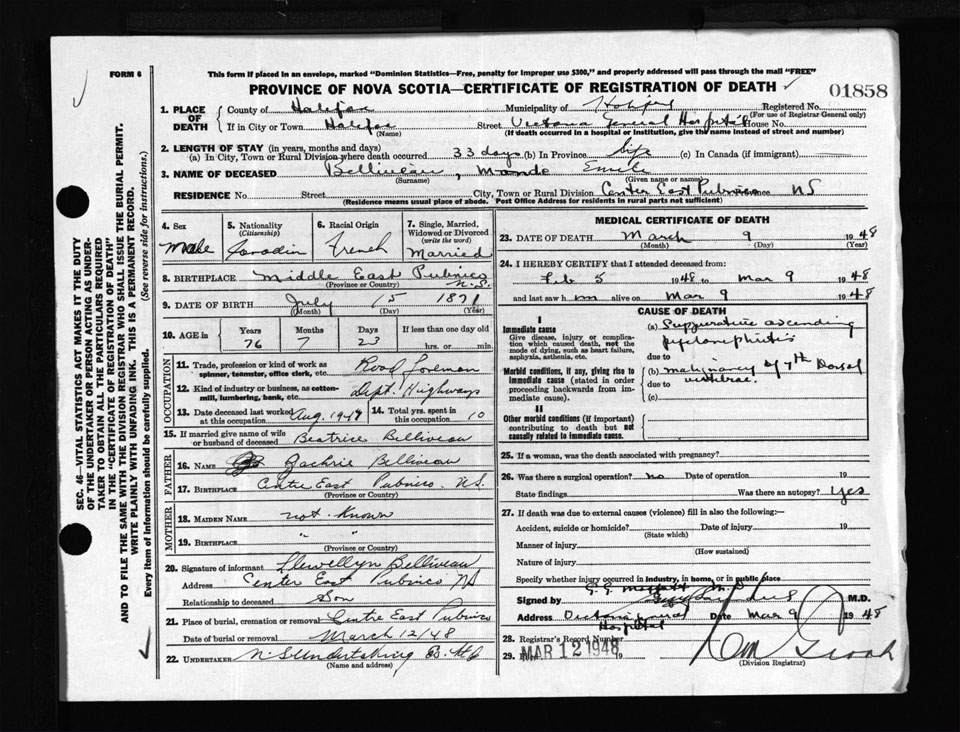 FORM 6
This form if placed in an envelope, marked "Dominion Statistics—Free, penalty for improper use $300," and properly addressed will pass through the mail "FREE"
PROVINCE OF NOVA SCOTIA—CERTIFICATE OF REGISTRATION OF DEATH
01858
SEC. 46—VITAL STATISTICS ACT MAKES IT THE DUTY
OF THE UNDERTAKER OR PERSON ACTING AS UNDER-
TAKER TO OBTAIN ALL THE PARTICULARS REQUIRED
IN THE "CERTIFICATE OF REGISTRATION OF DEATH"
AND TO FILE THE SAME WITH THE DIVISION REGISTRAR WHO SHALL ISSUE THE BURIAL PERMIT.
WRITE PLAINLY WITH UNFADING INK. THIS IS A PERMANENT RECORD.
Every item of information should be carefully supplied. (See reverse side for instructions.)
1. PLACE OF DEATH
County of Halifax Municipality of Halifax Registered No.
(For use of Registrar General only)
If in City or Town Halifax Street Victoria General Hospital House No.
(Name) (If death occurred in a hospital or institution, give the name instead of street and number)
2. LENGTH OF STAY (in years, months and days)
(a) In City, Town or Rural Division where death occurred 33 days (b) In Province Life (c) In Canada (if immigrant)
3. NAME OF DECEASED Belliveau, Mande Emile
(Surname) (Given name or names)
RESIDENCE No. Street City, Town or Rural Division Center East Pubnico NS
(Residence means usual place of abode. Post Office Address for residents in rural parts not sufficient)
4. Sex
Male
5. Nationality
(Citizenship)
Canadian
6. Racial Origin
French
7. Single, Married,
Widowed or Divorced
(write the word)
Married
8. BIRTHPLACE Middle East Pubnico N.S.
(Province or Country)
9. DATE OF BIRTH July 15 1871
(Month) (Day) (Year)
10. AGE in
Years Months Days If less than one day
76 7 23 hrs. or min.
OCCUPATION
11. Trade, profession or kind of work as
spinner, teamster, office clerk, etc. Road foreman
12. Kind of industry or business, as cotton-
mill, lumbering, bank, etc. Dept. Highways
13. Date deceased last worked
at this occupation Aug. 1947
14. Total yrs. spent in
this occupation 10
15. If married give name of wife
or husband of deceased Beatrice Belliveau
FATHER
16. NAME Zachrie Belliveau
17. BIRTHPLACE Centre East Pubnico N.S.
(Province or Country)
MOTHER
18. MAIDEN NAME not known
19. BIRTHPLACE " "
(Province or Country)
20. Signature of informant Llewellyn Belliveau
Address Center East Pubnico NS
Relationship to deceased Son
21. Place of burial, cremation or removal Centre East Pubnico
Date of burial or removal March 12/48
22. UNDERTAKER N.S Undertaking Co.
(Name and address)
MEDICAL CERTIFICATE OF DEATH
23. DATE OF DEATH March 9 1948
(Month) (Day) (Year)
24. I HEREBY CERTIFY that I attended deceased from:
Feb 5 1948 to Mar 9 1948
and last saw h im alive on Mar 9 1948
CAUSE OF DEATH
I
Immediate cause
Give disease, injury or complica-
tion which caused death, not the
mode of dying, such as heart failure,
asphyxia, asthenia, etc.
(a) Suppurative ascending
pyelonephritis
due to
Morbid conditions, if any, giving rise to
immediate cause (stated in order
proceeding backwards from im-
mediate cause).
(b) malignancy of 7th Dorsal
due to vertebrae.
(c)
II
Other morbid conditions (if important)
contributing to death but not
causally related to immediate cause.
25. If a woman, was the death associated with pregnancy?
26. Was there a surgical operation? no Date of operation 19
State findings Was there an autopsy? Yes
27. If death was due to external causes (violence) fill in also the following:—
Accident, suicide or homicide? Date of injury 19
(State which)
Manner of injury
(How sustained)
Nature of injury
Specify whether injury occurred in industry, in home, or in public place
Signed by M.D.
Address Victoria General Hospital Date Mar 9 1948
28. Registrar's Record Number
29. MAR 12 1948 19
(Division Registrar)